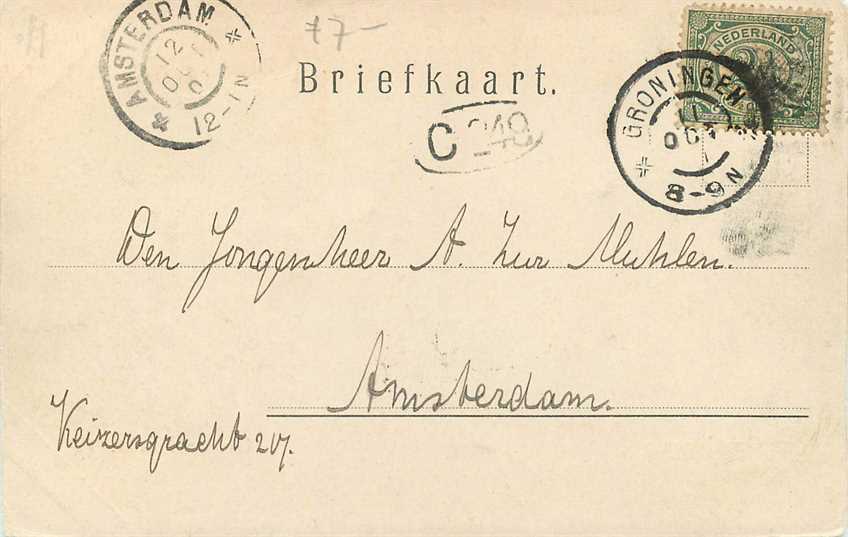 AMSTERDAM
12
OCT
12-1N
7-
Briefkaart.
NEDERLAND
GRONINGEN
11
OCT
8-9N
C 248
Den Jongenheer A. Zur Muhlen.
Amsterdam.
Keizersgracht 207.